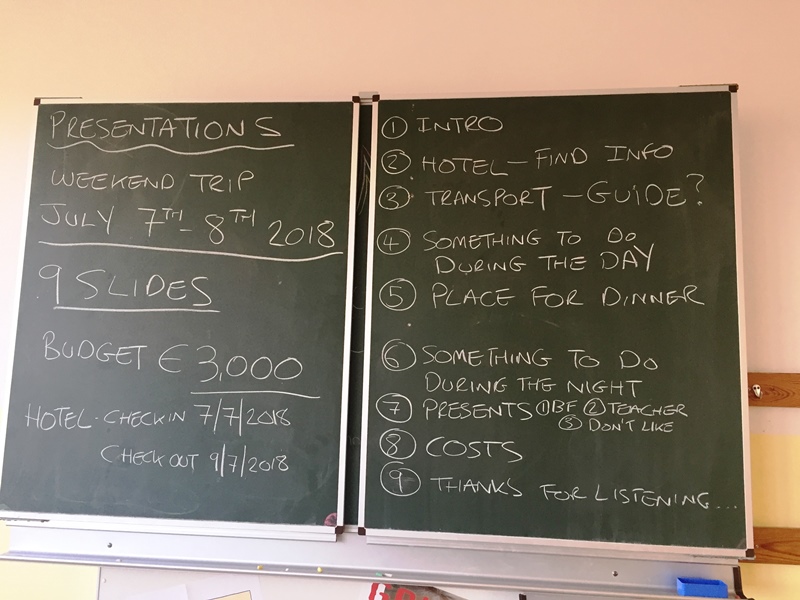 PRESENTATIONS
WEEKEND TRIP
JULY 7TH - 8TH 2018
9 SLIDES
BUDGET € 3,000
HOTEL - CHECK IN 7/7/2018
CHECK OUT 9/7/2018
① INTRO
② HOTEL - FIND INFO
③ TRANSPORT - GUIDE?
④ SOMETHING TO DO
DURING THE DAY
⑤ PLACE FOR DINNER
⑥ SOMETHING TO DO
DURING THE NIGHT
⑦ PRESENTS ① BF ② TEACHER
③ DON'T LIKE
⑧ COSTS
⑨ THANKS FOR LISTENING...